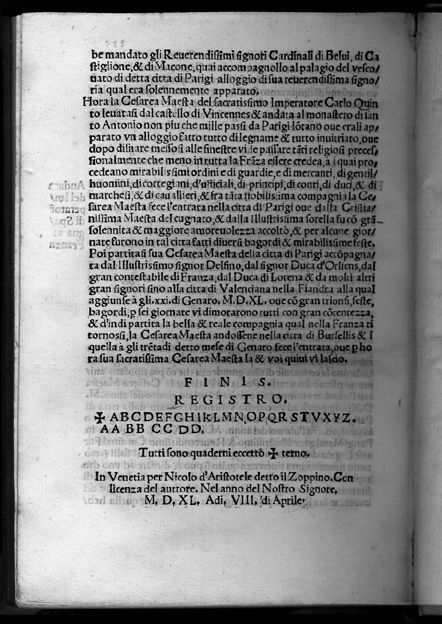 be mandato gli Reuerendissimi signori Cardinali di Belui, di Ca
stiglione, & di Macone, quai accompagnollo al palagio del vesco/
uato di detta citta di Parigi alloggio di sua reuerendissima signo/
ria qual era solennemente apparato.
Hora la Cesarea Maesta del sacratissimo Imperatore Carlo Quin
to leuatasi dal castello di Vincennes & andata al monastero di san
to Antonio non piu che mille passi da Parigi lõtano oue erali ap/
parato vn alloggio fatto tutto di legname & tutto inuitriato, oue
dopo disinare messosi alle finestre vi se passare tãti religiosi preces/
sionalmente che meno in tutta la Frãza essere credea, a i quai pro/
cedeano mirabilissimi ordini e di guardie, e di mercanti, di gentil/
huomini, di cortegiani, d'ufficiali, di principi, di conti, di duci, & di
marchesi, & di cauallieri, & fra tãta nobilissima compagnia la Ce/
sarea Maesta fece l'entrata nella citta di Parigi oue dalla Cristia/
nissima Maesta del cugnato, & dalla Illustrissima sorella fu cõ grã
solennita & maggiore amoreuolezza accolto, & per alcune gior/
nate furono in tal citta fatti diuersi bagordi & mirabilissime feste.
Poi partita si sua Cesarea Maesta della citta di Parigi accõpagna/
ta dal Illustrissimo signor Delfino, dal signor Duca d'Orliens, dal
gran contestabile di Franza, dal Duca di Lorena & da molti altri
gran signori sino alla citta di Valenciana nella Fiandra alla qual
aggiunse à gli .xxi. di Genaro. M. D. XL. oue cõ gran trionfi, feste,
bagordi, p sei giornate vi dimorarono tutti con gran cõtentezza,
& d'indi partita la bella & reale compagnia qual nella Franza ri
tornossi, la Cesarea Maesta andossene nella citta di Bursellis & i
quella à gli trẽtadi detto mese di Genaro fece l'entrata, oue p ho
ra sua sacratissima Cesarea Maesta la & voi quiui vi lascio.
F I N I S.
R E G I S T R O.
✠ A B C D E F G H I K L M N O P Q R S T V X Y Z.
AA BB CC DD.
Tutti sono quaderni eccetto ✠ terno.
In Venetia per Nicolo d'Aristotele detto il Zoppino. Con
licenza del auttore. Nel anno del Nostro Signore.
M. D. XL. Adi. VIII. di Aprile.